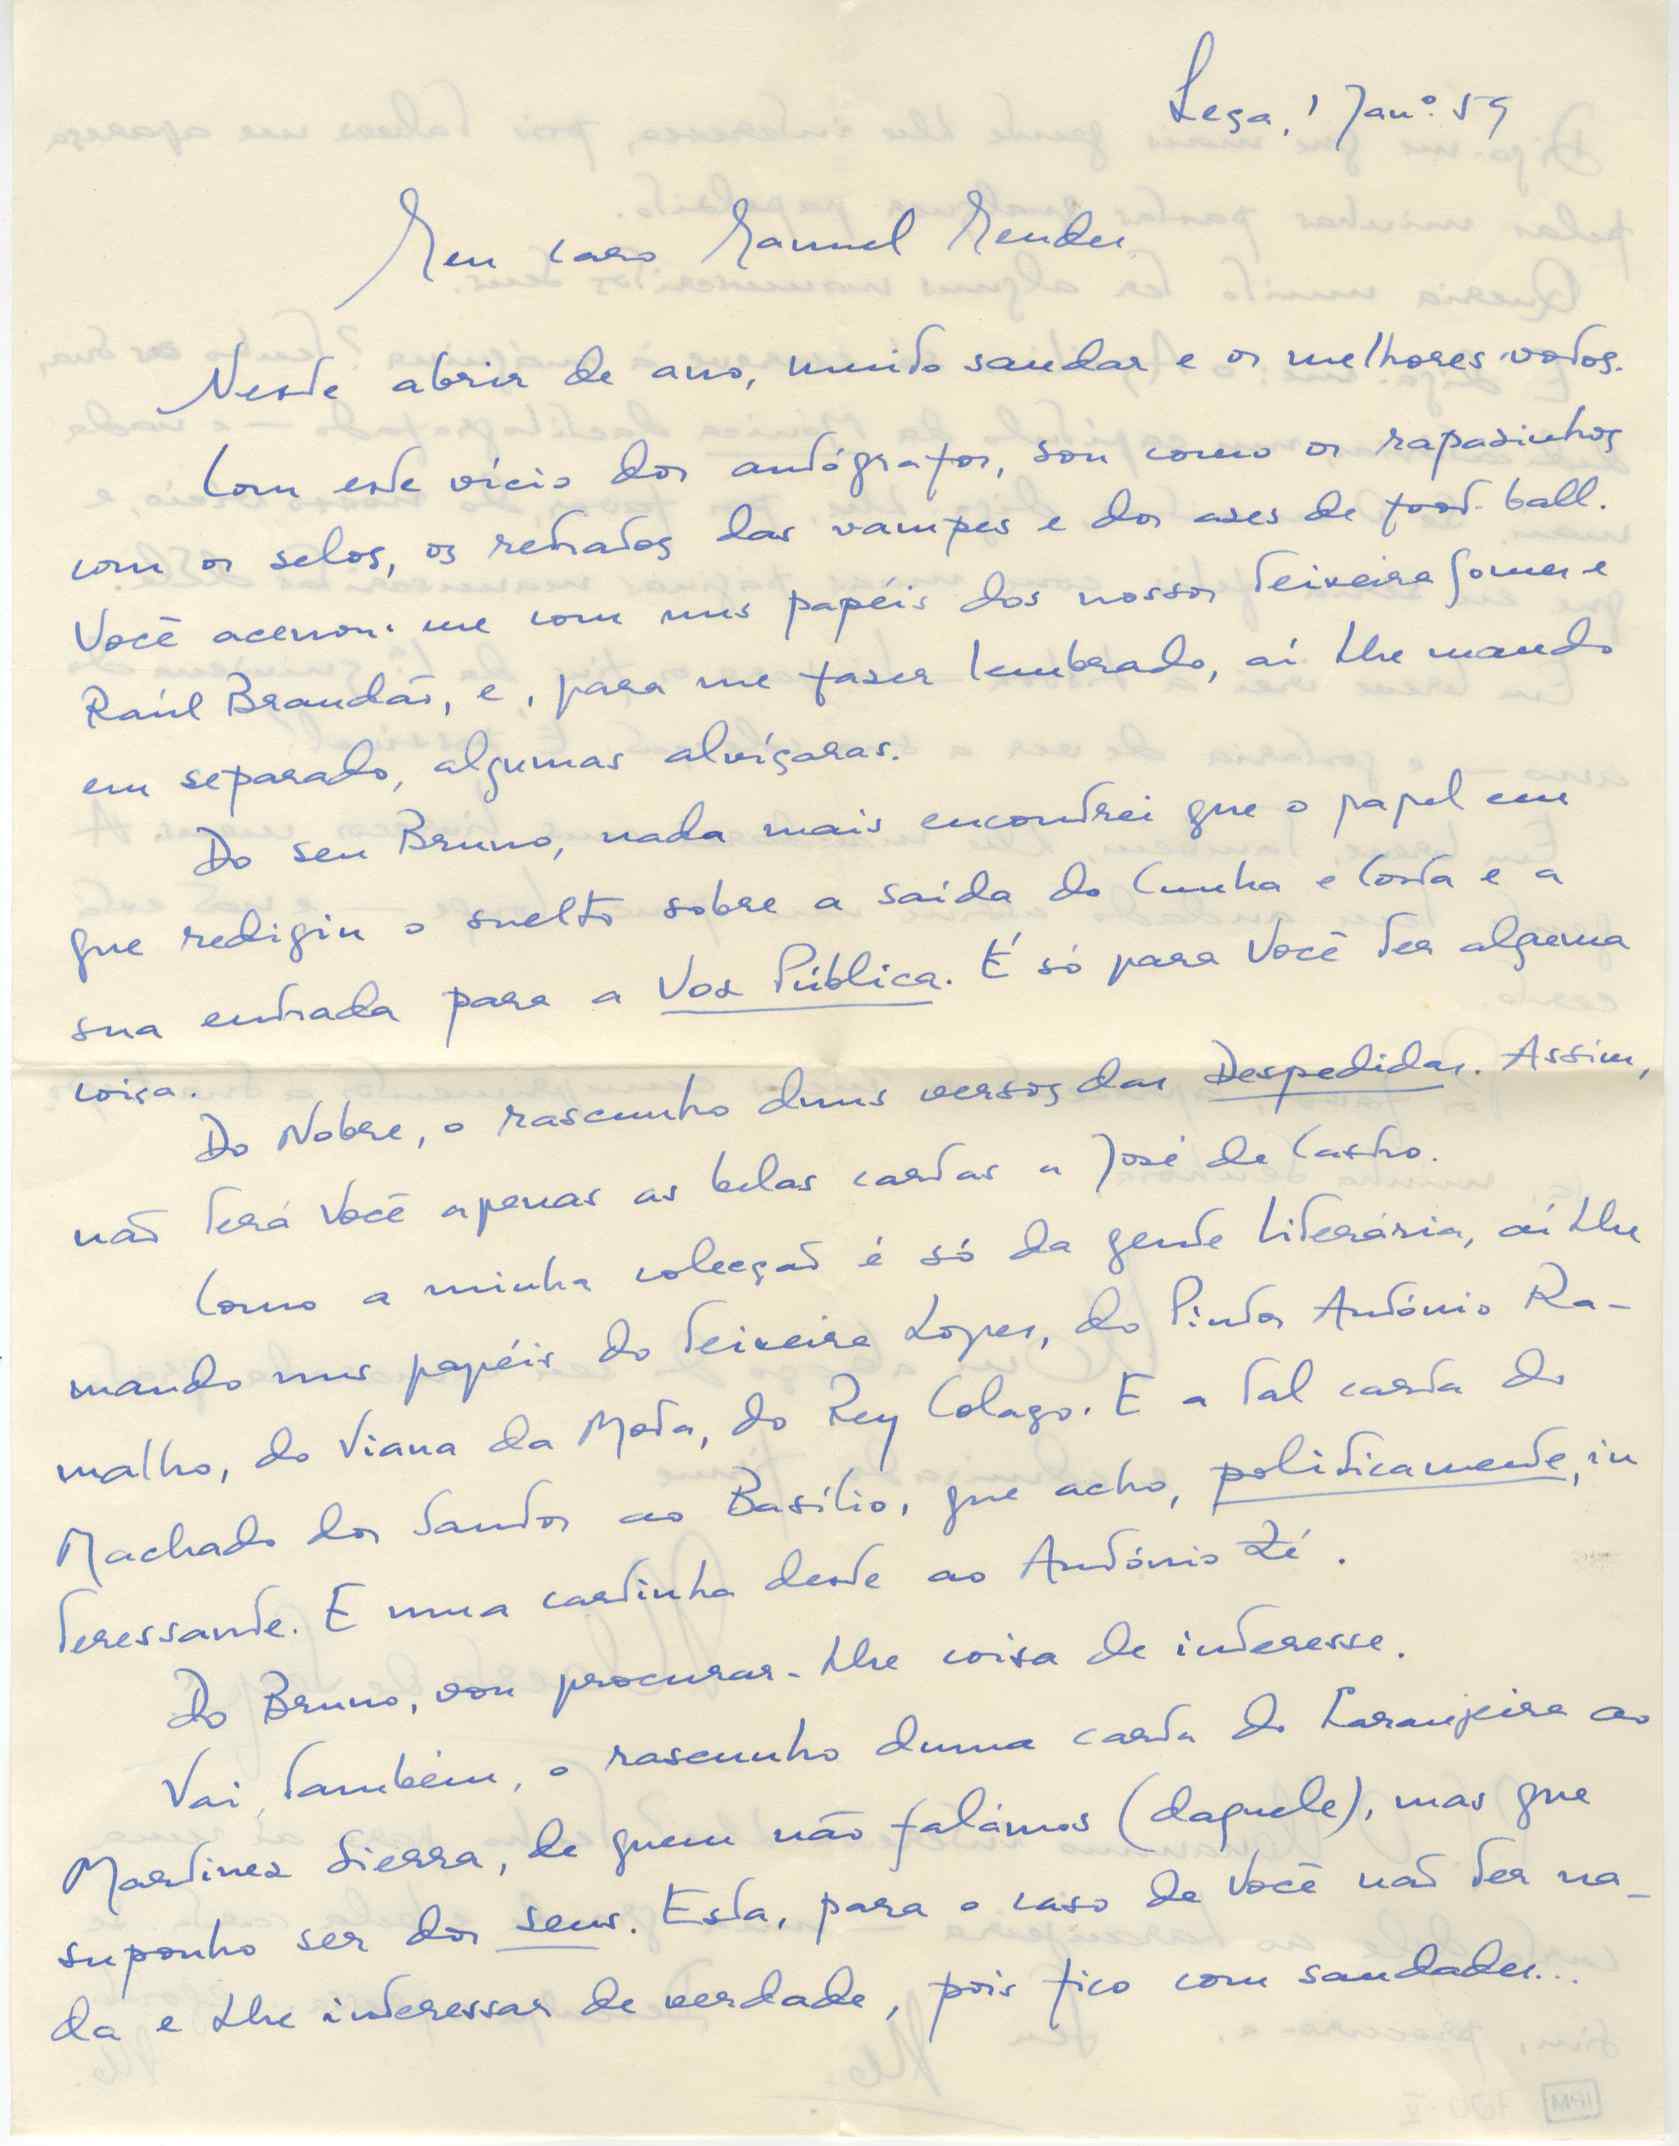 Leça, 1 Janº. 59
Meu caro Manuel Mendes
Neste abrir de ano, muito saudar e os melhores votos.
Com este vício dos autógrafos, sou como os rapasinhos
com os selos, os retratos das vampes e dos ases de foot-ball.
Você acenou-me com uns papéis dos nossos Teixeira Gomes e
Raúl Brandão, e, para me faser lembrado, aí lhe mando
em separado, algumas alvíçaras.
Do seu Bruno, nada mais encontrei que o papel em
que redigiu o suelto sobre a saída do Cunha e Costa e a
sua entrada para a Voz Pública. É só para Você ter alguma
coisa.
Do Nobre, o rascunho duns versos das Despedidas. Assim,
não terá Você apenas as belas cartas a José de Castro.
Como a minha colecção é só da gente literária, aí lhe
mando uns papéis do Teixeira Lopes, do Pintor António Ra-
malho, do Viana da Mota, do Rey Colaço. E a tal carta do
Machado dos Santos ao Basílio, que acho, politicamente, in
teressante. E uma cartinha deste ao António Zé.
Do Bruno, vou procurar-lhe coisa de interesse.
Vai, também, o rascunho duma carta do Laranjeira ao
Martinez Sierra, de quem não falámos (daquele), mas que
suponho ser dos seus. Esta, para o caso de Você não ter na-
da e lhe interessar de verdade, pois fico com saudades...